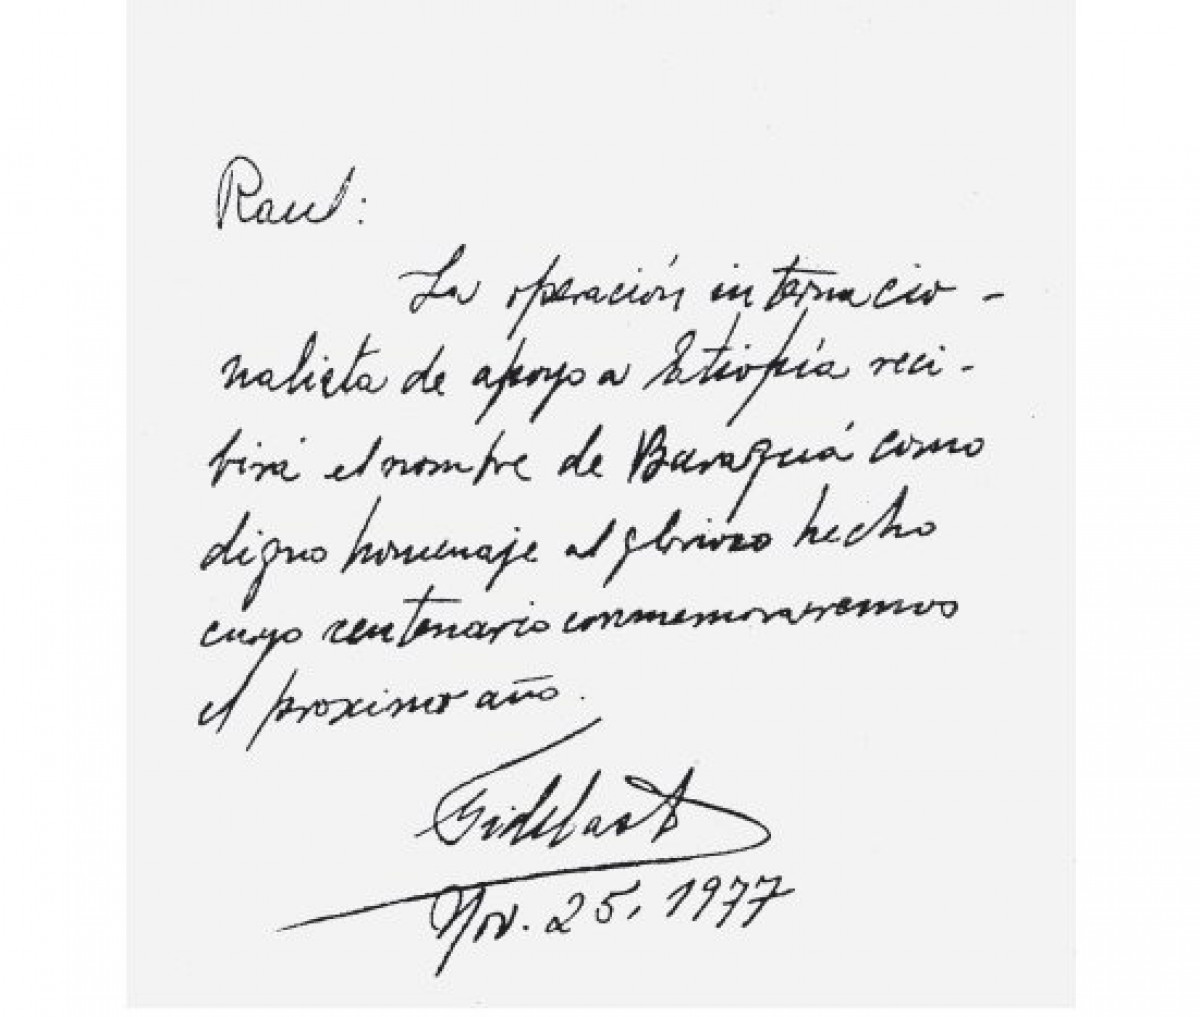 Raul:
La operación internacio-
nalista de apoyo a Etiopía reci-
birá el nombre de Baraguá como
digno homenaje al glorioso hecho
cuyo centenario conmemoraremos
el proximo año.
Fidel Castro
Nov. 25, 1977